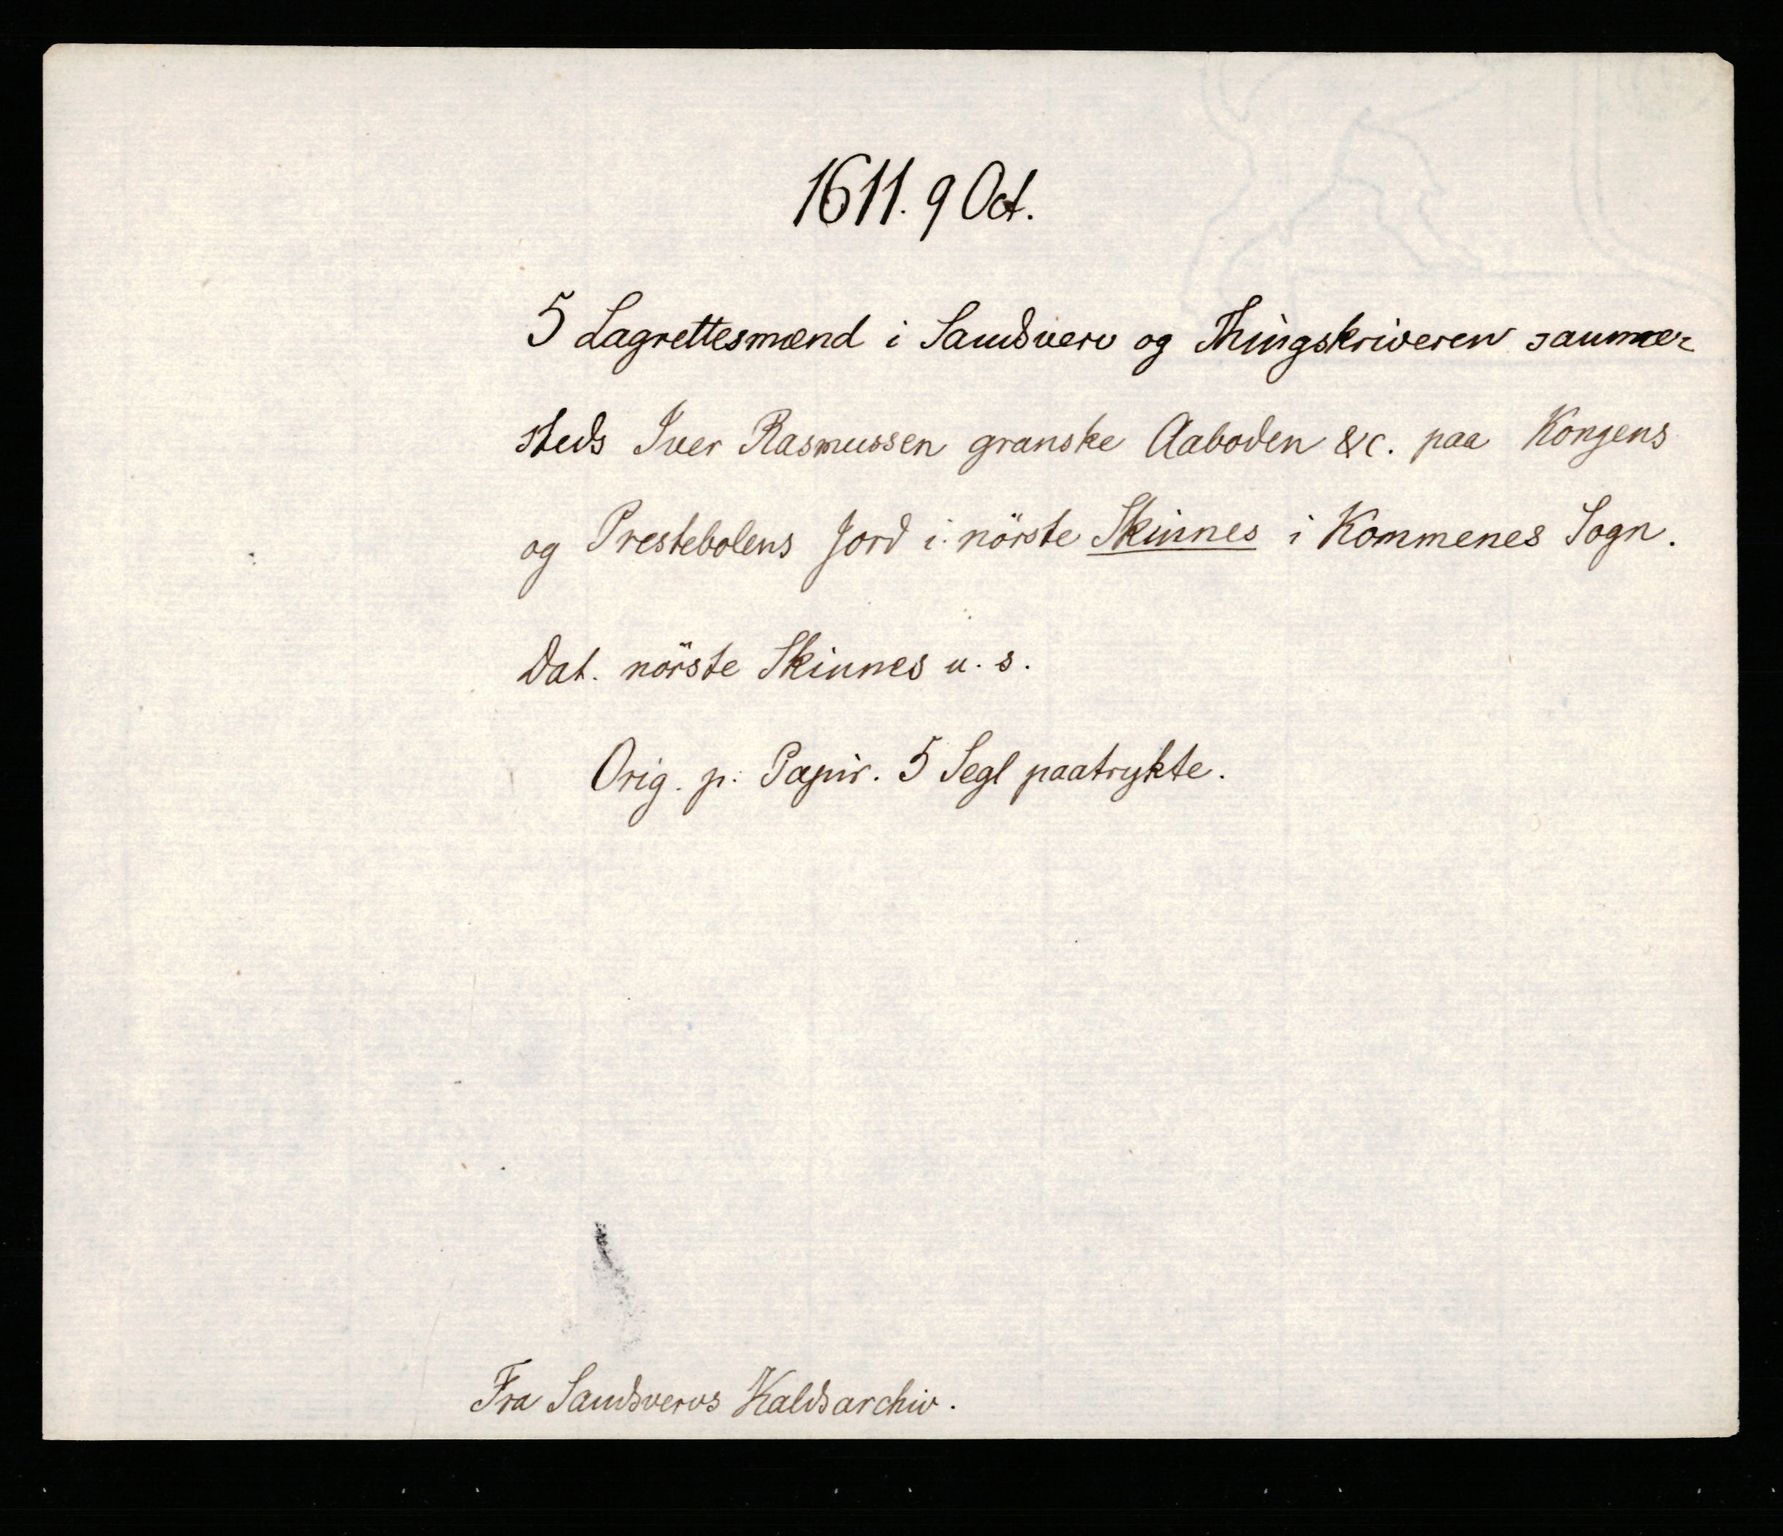 1611. 9 Oct.
5 Lagrettesmænd i Sandsverv og Thingskriveren sammer
steds Iver Rasmussen granske Aaboden &c. paa Kongens
og Prestebolens Jord i nörste Skinnes i Kommenes Sogn.
Dat. nörste Skinnes u. s.
Orig. p. Papir. 5 Segl paatrykte.
Fra Sandsvervs Kaldsarchiv.